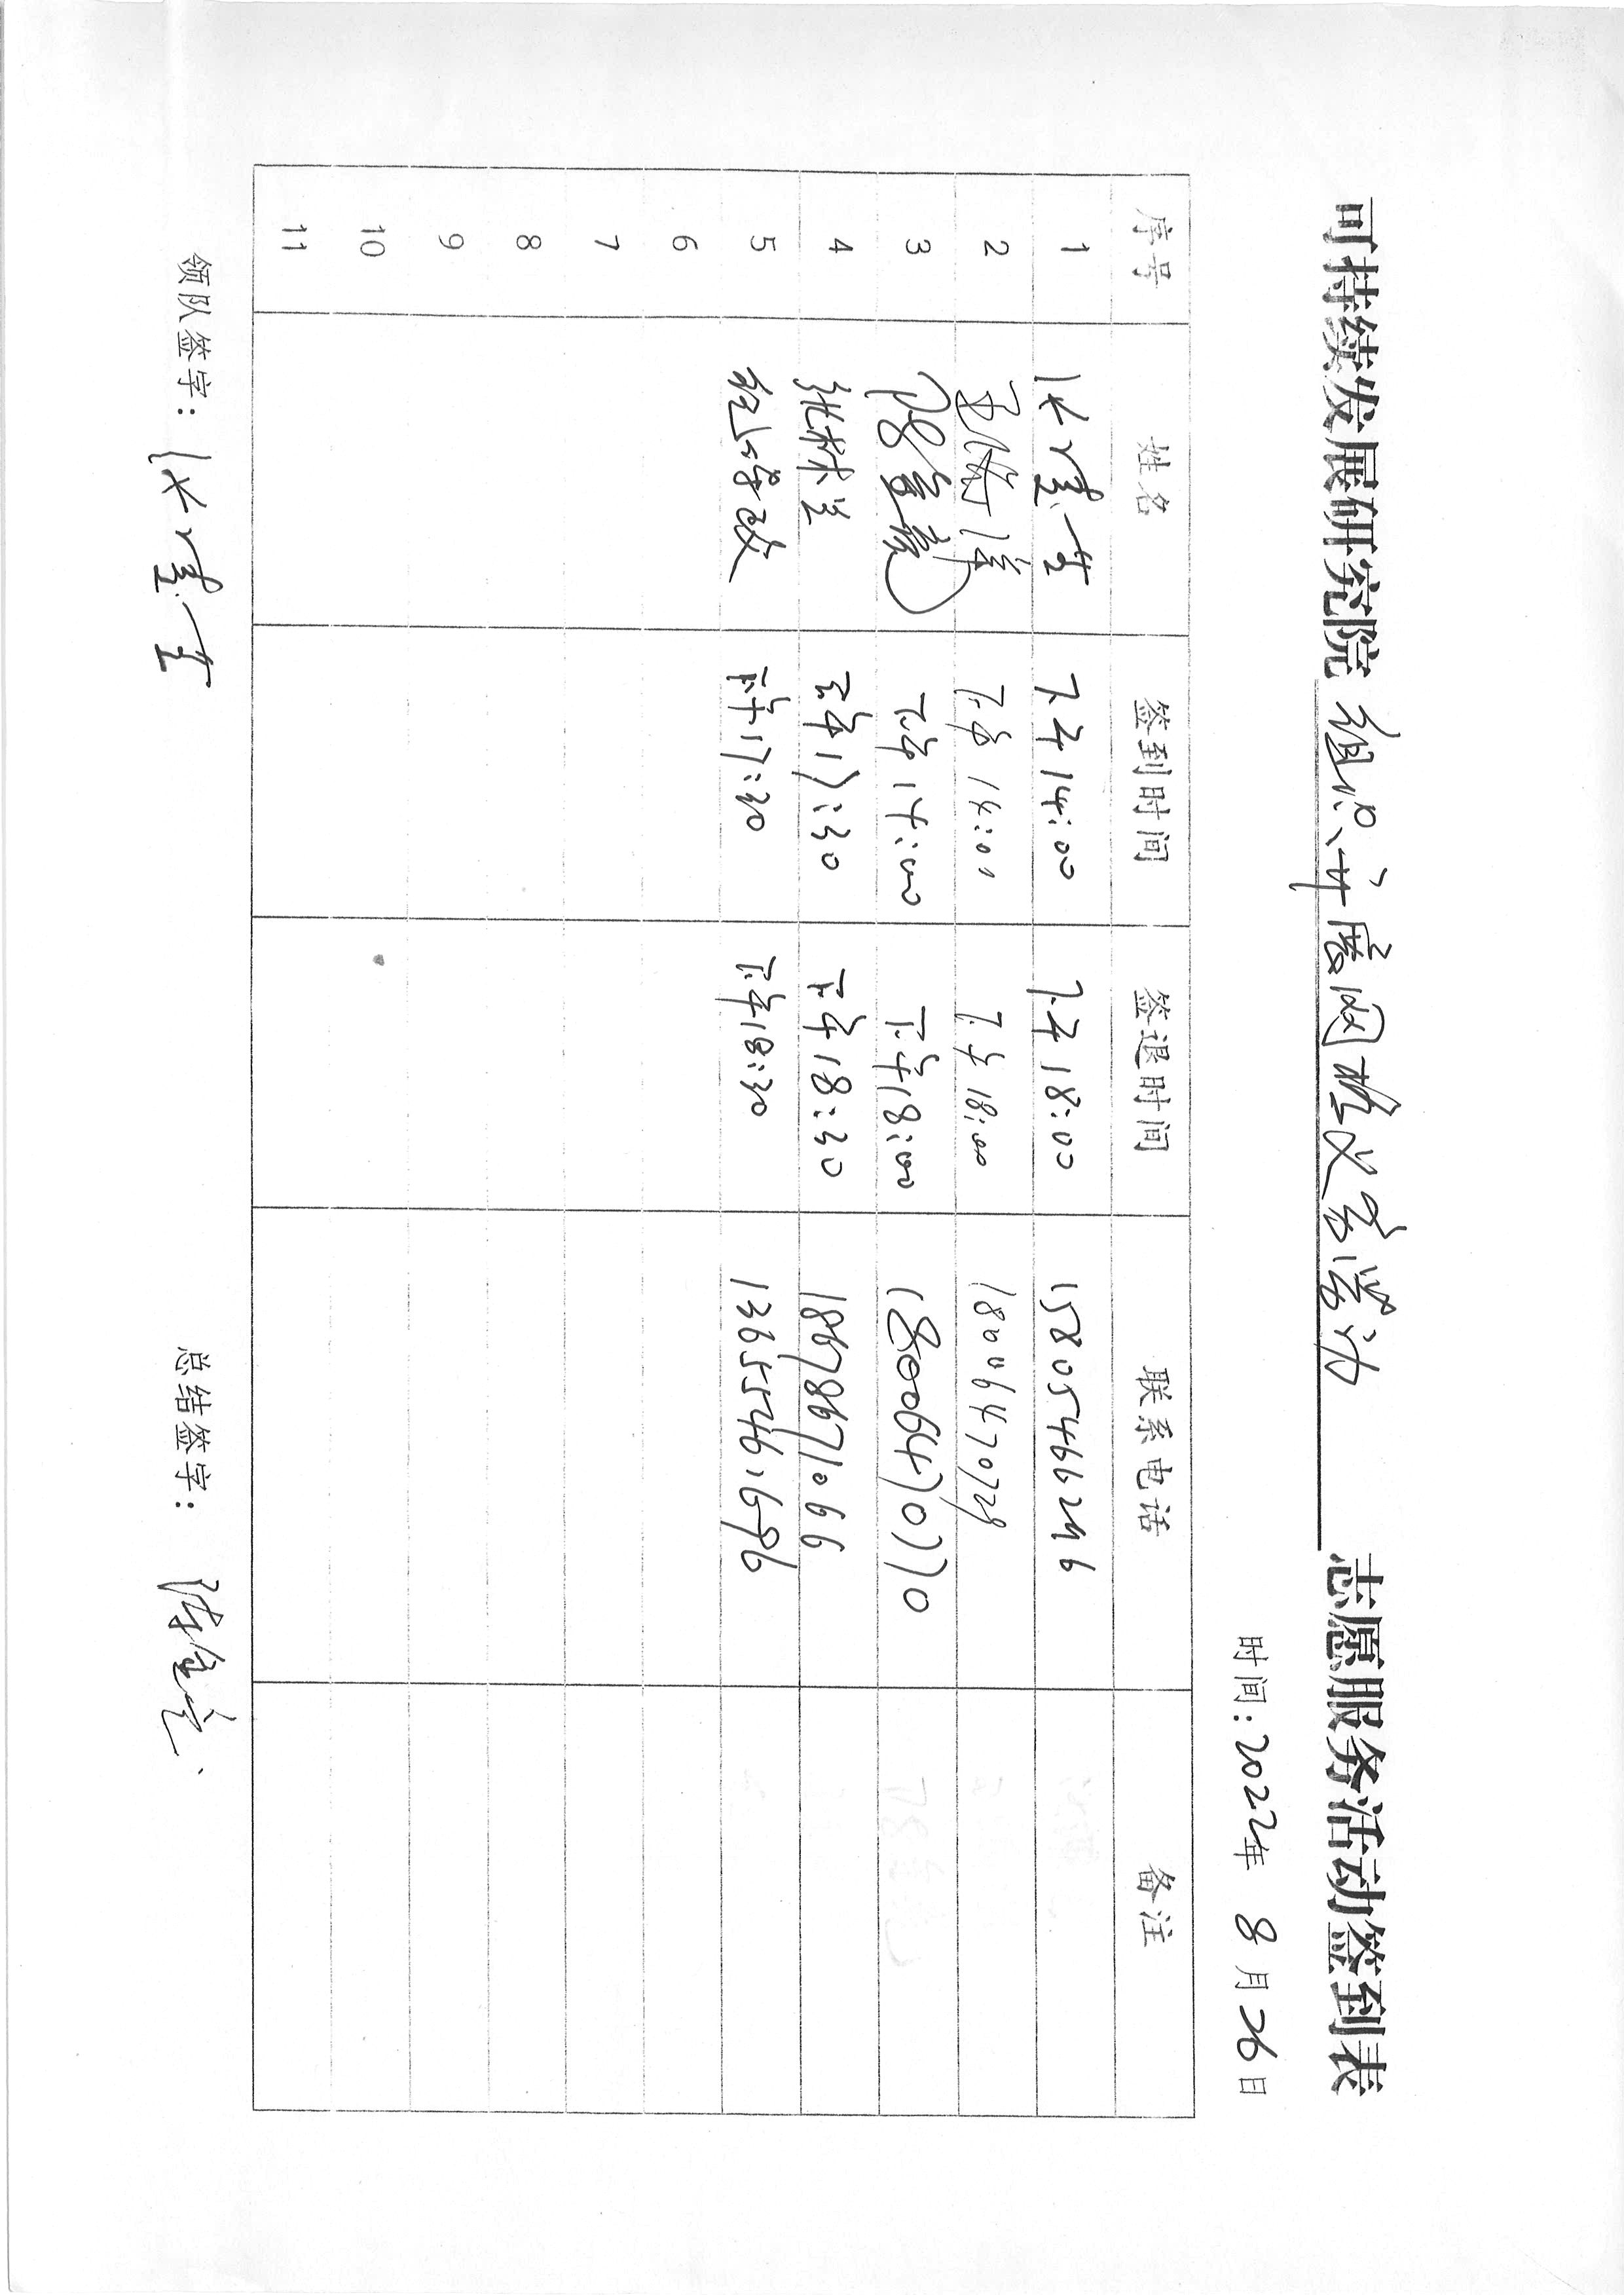 可持续发展研究院 组织开展网格义务劳动 志愿服务活动签到表
时间:2022年 8月26日
序号 姓名 签到时间 签退时间 联系电话 备注
1 下午14:00 下午18:00 15805466296
2 下午14:00 下午18:00 18006470729
3 下午14:00 下午18:00 18006470770
4 张林兰 下午17:30 下午18:30 18678671066
5 下午17:30 下午18:30 13655461696
6
7
8
9
10
11
领队签字: 总结签字: